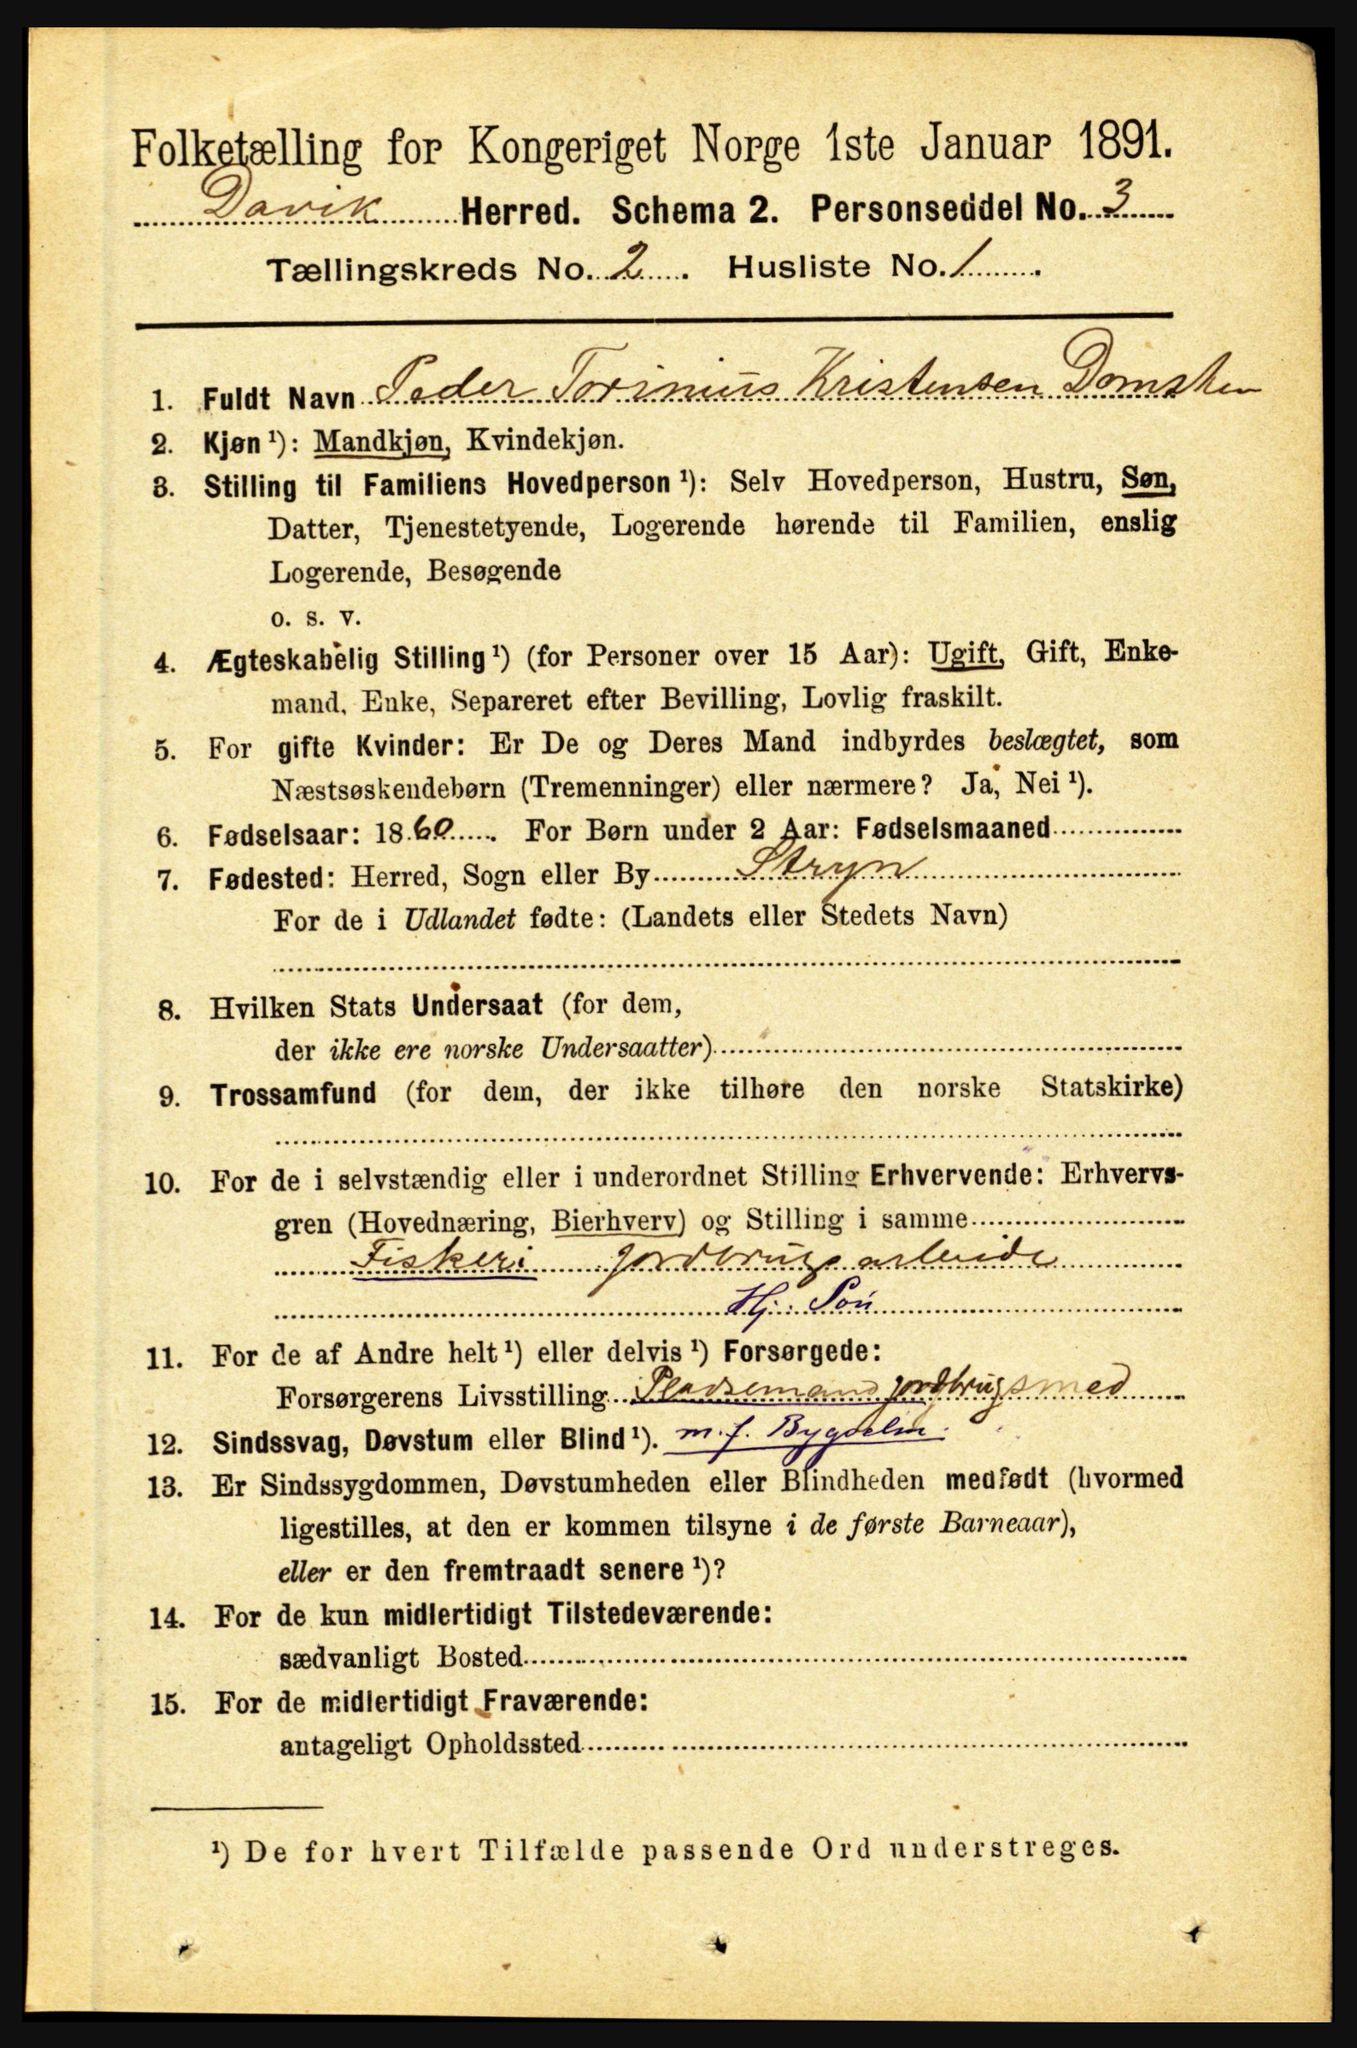 Folketælling for Kongeriget Norge 1ste Januar 1891.
Davik Herred. Schema 2. Personseddel No. 3
Tællingskreds No. 2. Husliste No. 1.
1. Fuldt Navn Peder Torinius Kristensen Domsten
2. Kjøn ¹): Mandkjøn, Kvindekjøn.
3. Stilling til Familiens Hovedperson ¹): Selv Hovedperson, Hustru, Søn,
Datter, Tjenestetyende, Logerende hørende til Familien, enslig
Logerende, Besøgende
o. s. v.
4. Ægteskabelig Stilling ¹) (for Personer over 15 Aar): Ugift, Gift, Enke-
mand, Enke, Separeret efter Bevilling, Lovlig fraskilt.
5. For gifte Kvinder: Er De og Deres Mand indbyrdes beslægtet, som
Næstsøskendebørn (Tremenninger) eller nærmere? Ja, Nei ¹).
6. Fødselsaar: 1860. For Børn under 2 Aar: Fødselsmaaned
7. Fødested: Herred, Sogn eller By Stryn
For de i Udlandet fødte: (Landets eller Stedets Navn)
8. Hvilken Stats Undersaat (for dem,
der ikke ere norske Undersaatter)
9. Trossamfund (for dem, der ikke tilhøre den norske Statskirke)
10. For de i selvstændig eller i underordnet Stilling Erhvervende: Erhvervs-
gren (Hovednæring, Bierhverv) og Stilling i samme
Fiskeri jordbrugsarbeide
Hj. Søn
11. For de af Andre helt ¹) eller delvis ¹) Forsørgede:
Forsørgerens Livsstilling Pladsemand jordbrugsmed
12. Sindssvag, Døvstum eller Blind ¹). m. f. Bygselm.
13. Er Sindssygdommen, Døvstumheden eller Blindheden medfødt (hvormed
ligestilles, at den er kommen tilsyne i de første Barneaar),
eller er den fremtraadt senere ¹)?
14. For de kun midlertidigt Tilstedeværende:
sædvanligt Bosted
15. For de midlertidigt Fraværende:
antageligt Opholdssted
¹) De for hvert Tilfælde passende Ord understreges.